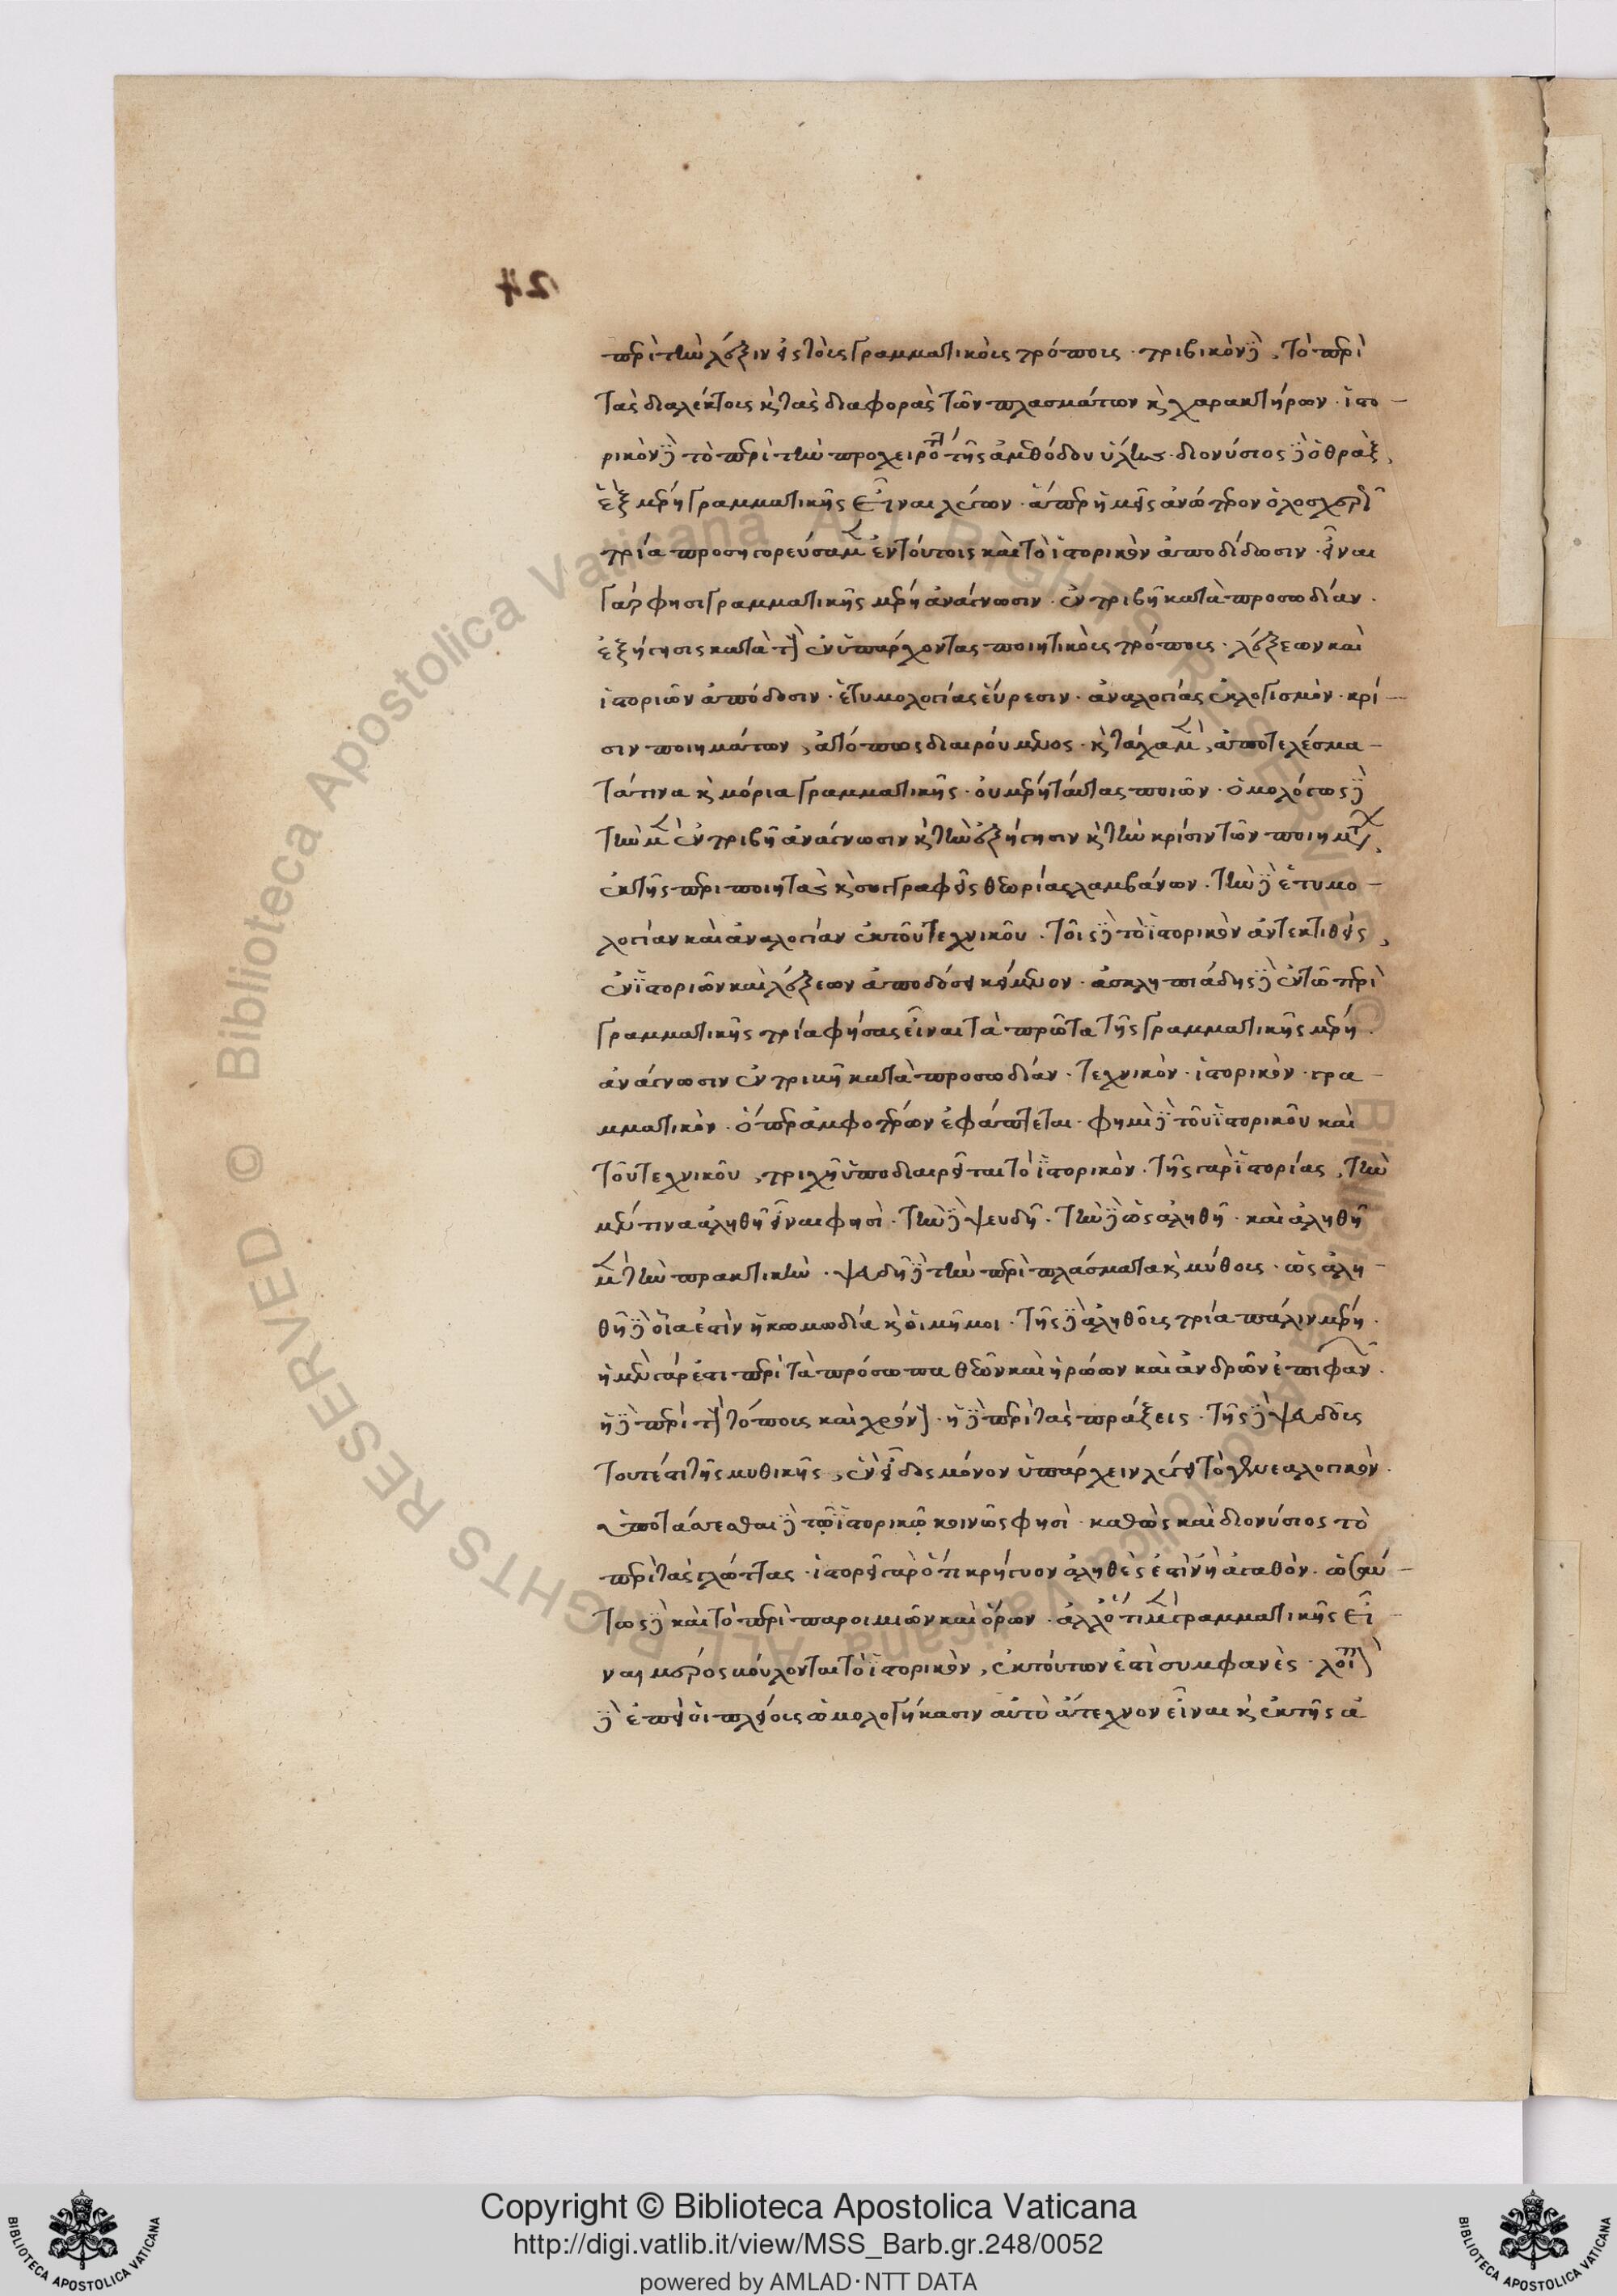 περὶ τὴν λέξιν εἰς τοὺς γραμματικοὺς τρόπους· τριβικὸν δὲ, τὸ περὶ
τὰς διαλέκτους κ̀ τὰς διαφορὰς τῶν πλασμάτων κ̀ χαρακτήρων· ἱστο-
ρικὸν δὲ τὸ περὶ τὴν προχειρότητα τῆς ἀμεθόδου ὕλης· διονύσιος δὲ ὁ θρᾲξ,
ἓξ μέρη γραμματικῆς εἶναι λέγων· ἅπερ ἡμεῖς ἀνώτερον ὁλοσχερῆ
τρία προσηγορεύσαμεν ἐν τούτοις καὶ τὸ ἱστορικὸν ἀποδίδωσιν· εἶναι
γάρ φησι γραμματικῆς μέρη ἀνάγνωσιν· ἐντριβῆ κατὰ προσωδίαν·
ἐξήγησις κατὰ τοὺς ἐνυπάρχοντας ποιητικοὺς τρόπους· λέξεων καὶ
ἱστοριῶν ἀπόδοσιν· ἐτυμολογίας εὕρεσιν· ἀναλογίας ἐκλογισμὸν· κρί-
σιν ποιημάτων, ἀτόπως διαιρούμενος· κ̀ τάχα μὲν, ἀποτελέσμα-
τά τινα κ̀ μόρια γραμματικῆς· οὐ μέρη ταύτας ποιῶν· ὁμολόγως δὲ
τὴν μὲν ἐντριβῆ ἀνάγνωσιν κ̀ τὴν ἐξήγησιν κ̀ τὴν κρίσιν τῶν ποιημάτων,
ἐκ τῆς περι ποιητὰς κ̀ συγγραφεῖς θεωρίας λαμβάνων· τὴν δὲ ἐτυμο-
λογίαν καὶ ἀναλογίαν ἐκ τοῦ τεχνικοῦ· τοῖς δὲ τὸ ἱστορικὸν ἀντεκτιθεὶς,
ἐν ἱστοριῶν καὶ λέξεων ἀποδόσει κείμενον· ἀσκληπιάδης δὲ ἐν τῶ περὶ
γραμματικῆς τρία φήσας εἶναι τὰ πρῶτα τῆς γραμματικῆς μέρη·
ἀνάγνωσιν ἐντρικῆ κατὰ προσωδίαν· τεχνικὸν· ἱστορικὸν· γρα-
μματικὸν· ὅπερ ἀμφοτέρων ἐφάπτεται· φημὶ δὲ τοῦ ἱστορικοῦ καὶ
τοῦ τεχνικοῦ, τριχῆ ὑποδιαιρεῖται τὸ ἱστορικὸν· τῆς γὰρ ἱστορίας, τὴν
μέν τινα ἀληθῆ εἶναι φησὶ· τὴν δὲ ψευδῆ· τὴν δὲ ὡς ἀληθῆ· καὶ ἀληθῆ
μὲν τὴν πρακτικὴν· ψευδῆ δὲ τὴν περὶ πλάσματα κ̀ μύθους· ὡς ἀλη-
θῆ δὲ οἷα ἐστὶν ἡ κωμωδία κ̀ οἱ μῆμοι· τῆς δὲ ἀληθοῦς τρία πάλιν μέρη·
ἡ μὲν γάρ ἐστι περὶ τὰ πρόσωπα θεῶν καὶ ἡρώων καὶ ἀνδρῶν ἐπιφανῶν·
ἡ δὲ περὶ τοὺς τόπους καὶ χρόνους· ἡ δὲ περὶ τὰς πράξεις· τῆς δὲ ψευδοῦς
τουτέστι τῆς μυθικῆς, ἓν εἶδος μόνον ὑπάρχειν λέγει τὸ γενεαλογικὸν·
ὑποτάσσεσθαι δὲ τῶ ἱστορικῶ κοινῶς φησὶ· καθὼς καὶ διονύσιος τὸ
περὶ τὰς γλώττας· ἱστορεῖ γὰρ ὅτι κρήγυον ἀληθὲς ἐστὶν ἢ ἀγαθὸν· ὡσαύ-
τως δὲ καὶ τὸ περὶ παροιμιῶν καὶ ὅρων· ἀλλ' ὅτι μὲν γραμματικῆς εἶ-
ναι μέρος βούλονται τὸ ἱστορικὸν, ἐκ τούτων ἐστὶ συμφανὲς· λοιπὸν
δὲ ἐπεὶ οἱ πλείους ὡμολογήκασιν αὐτὸ ἄτεχνον εἶναι κ̀ ἐκ τῆς ἀ
Copyright © Biblioteca Apostolica Vaticana
http://digi.vatlib.it/view/MSS_Barb.gr.248/0052
powered by AMLAD·NTT DATA